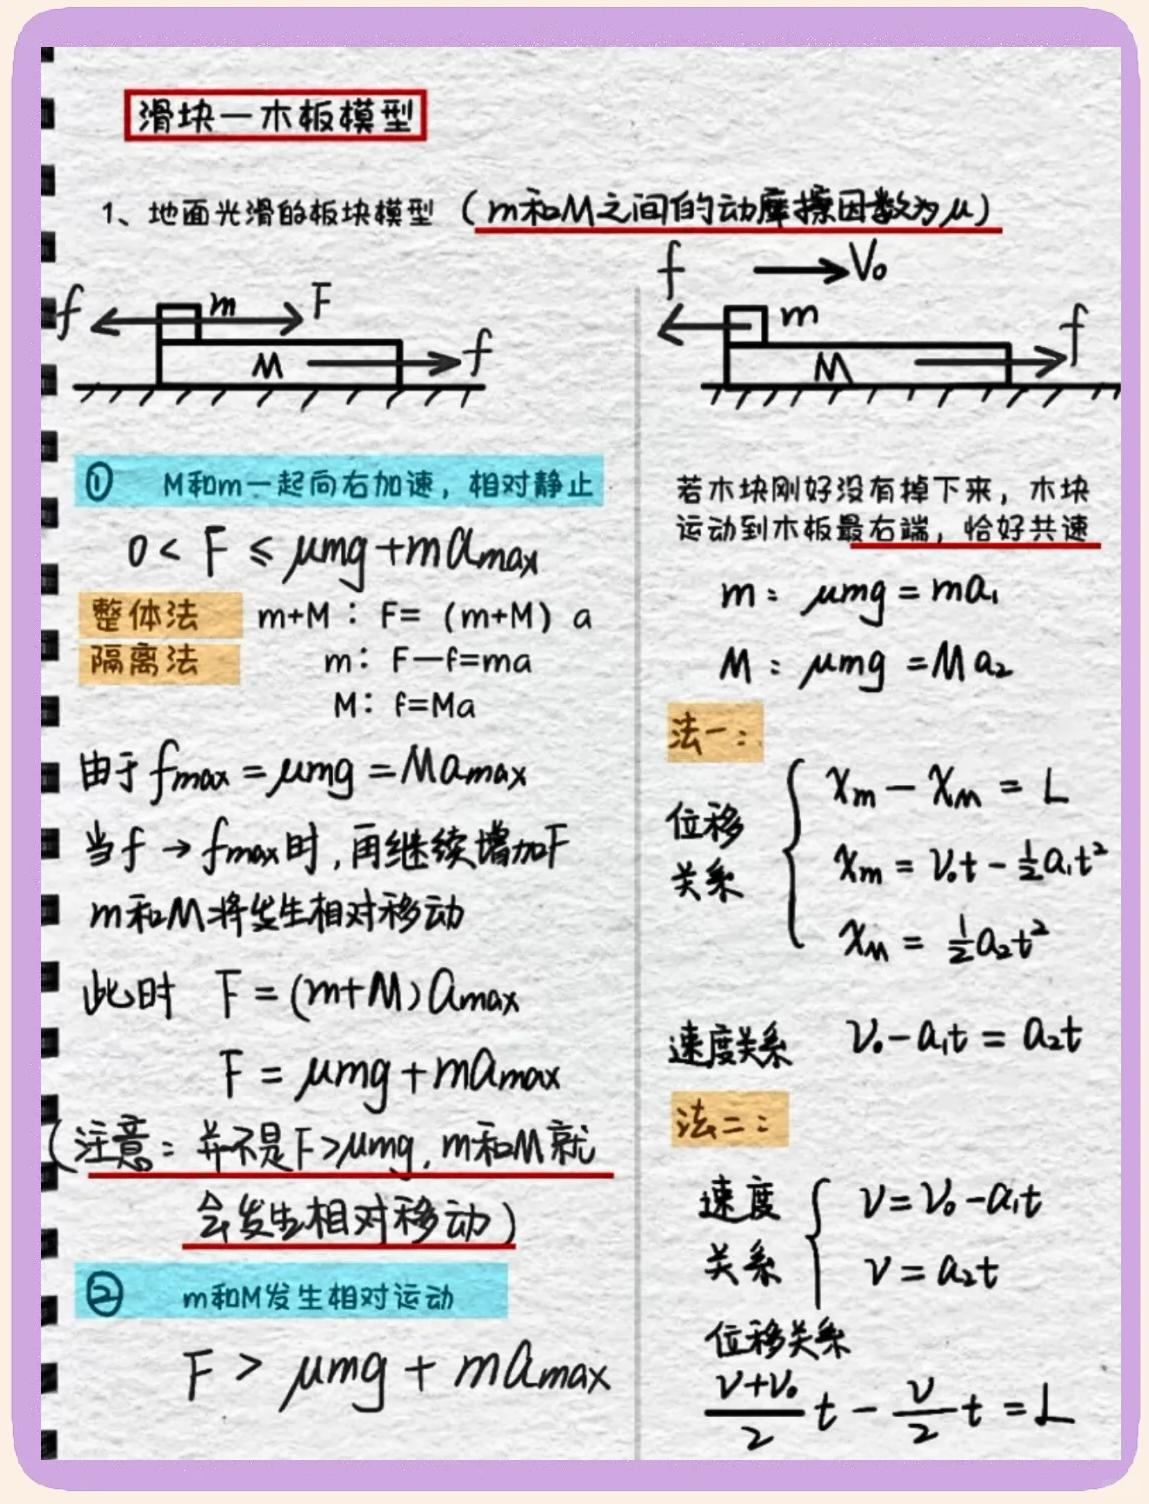 滑块—木板模型
1、地面光滑的板块模型（m和M之间的动摩擦因数为μ）
f m F
M f
① M和m一起向右加速，相对静止
0 < F ≤ μmg + ma_max
整体法 m+M：F=（m+M）a
隔离法 m：F—f=ma
M：f=Ma
由于 f_max = μmg = Ma_max
当 f → f_max 时，再继续增加F
m和M将发生相对移动
此时 F = (m+M)a_max
F = μmg + ma_max
（注意：并不是F>μmg，m和M就
会发生相对移动）
② m和M发生相对运动
F > μmg + ma_max
f V₀
m f
M
若木块刚好没有掉下来，木块
运动到木板最右端，恰好共速
m：μmg = ma₁
M：μmg = Ma₂
法一：
位移
关系
x_m − x_M = L
x_m = v₀t − ½a₁t²
x_M = ½a₂t²
速度关系 v₀ − a₁t = a₂t
法二：
速度
关系
v = v₀ − a₁t
v = a₂t
位移关系
(v+v₀)/2 t − v/2 t = L